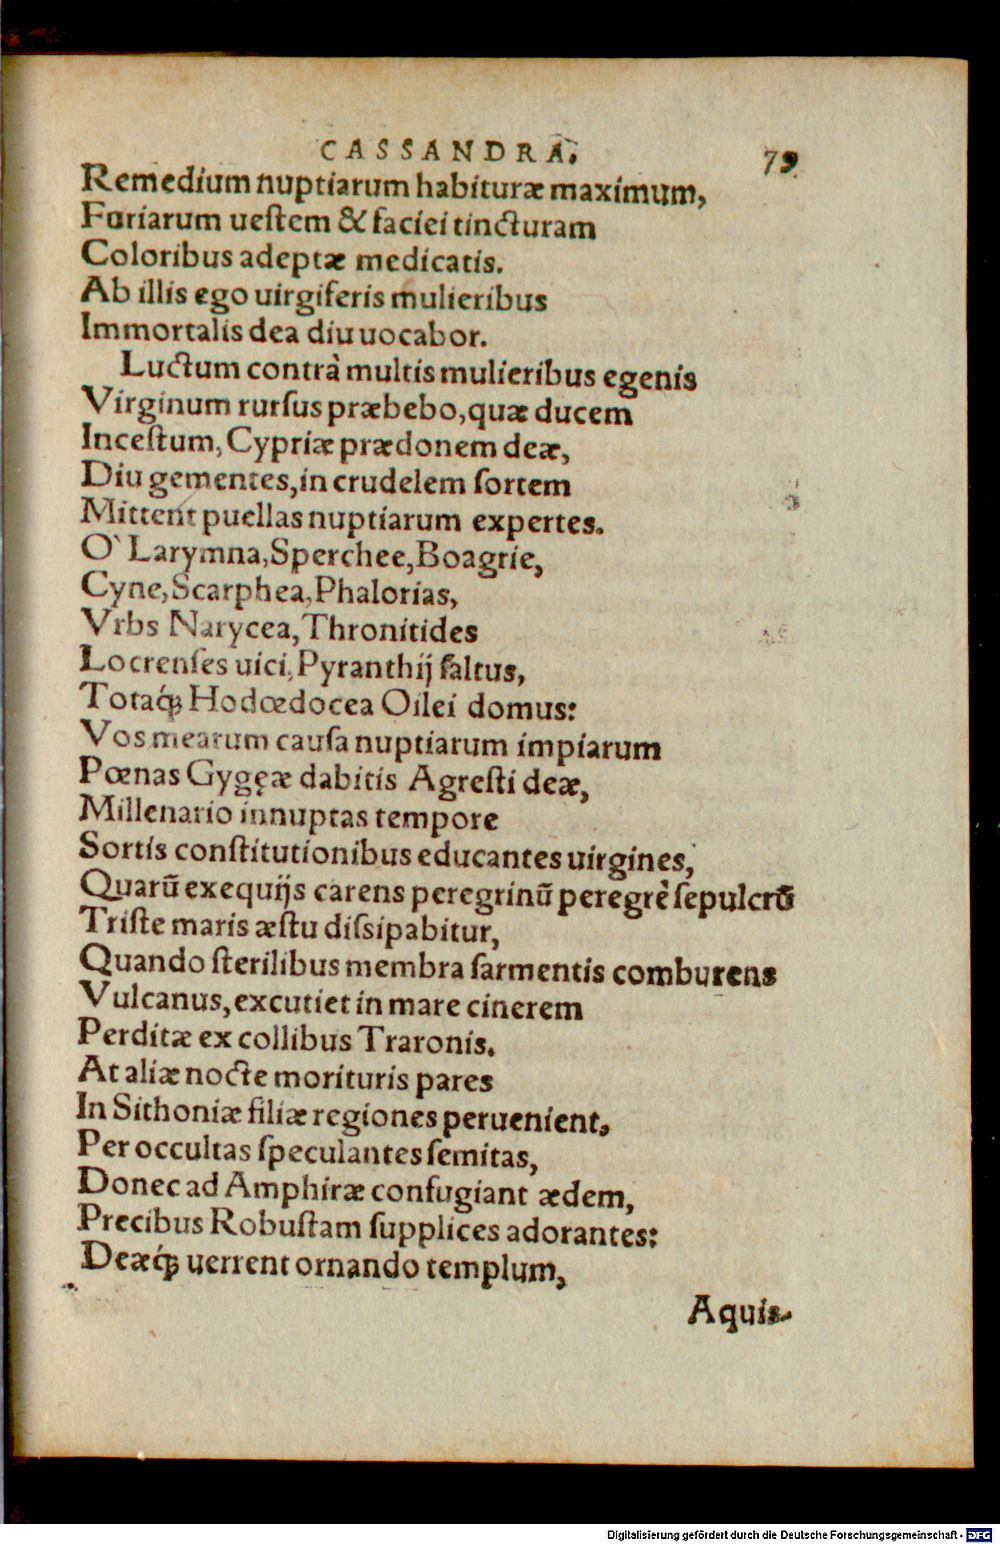 CASSANDRA. 79
Remedium nuptiarum habituræ maximum,
Furiarum ueſtem & faciei tincturam
Coloribus adeptæ medicatis.
Ab illis ego uirgiferis mulieribus
Immortalis dea diu uocabor.
Luctum contrà multis mulieribus egenis
Virginum rurſus præbebo, quæ ducem
Inceſtum, Cypriæ prædonem deæ,
Diu gementes, in crudelem ſortem
Mittent puellas nuptiarum expertes.
O` Larymna, Sperchee, Boagrie,
Cyne, Scarphea, Phalorias,
Vrbs Narycea, Thronitides
Locrenſes uici, Pyranthij ſaltus,
Totaq́ꝫ Hodœdocea Oilei domus:
Vos mearum cauſa nuptiarum impiarum
Pœnas Gygęæ dabitis Agreſti deæ,
Millenario innuptas tempore
Sortis conſtitutionibus educantes uirgines,
Quarũ exequijs carens peregrinũ peregrè ſepulcrũ
Triſte maris æſtu diſsipabitur,
Quando ſterilibus membra ſarmentis comburens
Vulcanus, excutiet in mare cinerem
Perditæ ex collibus Traronis.
At aliæ nocte morituris pares
In Sithoniæ filiæ regiones peruenient,
Per occultas ſpeculantes ſemitas,
Donec ad Amphiræ confugiant ædem,
Precibus Robuſtam ſupplices adorantes:
Deæq́ꝫ uerrent ornando templum,
Aquis
Digitalisierung gefördert durch die Deutsche Forschungsgemeinschaft - DFG